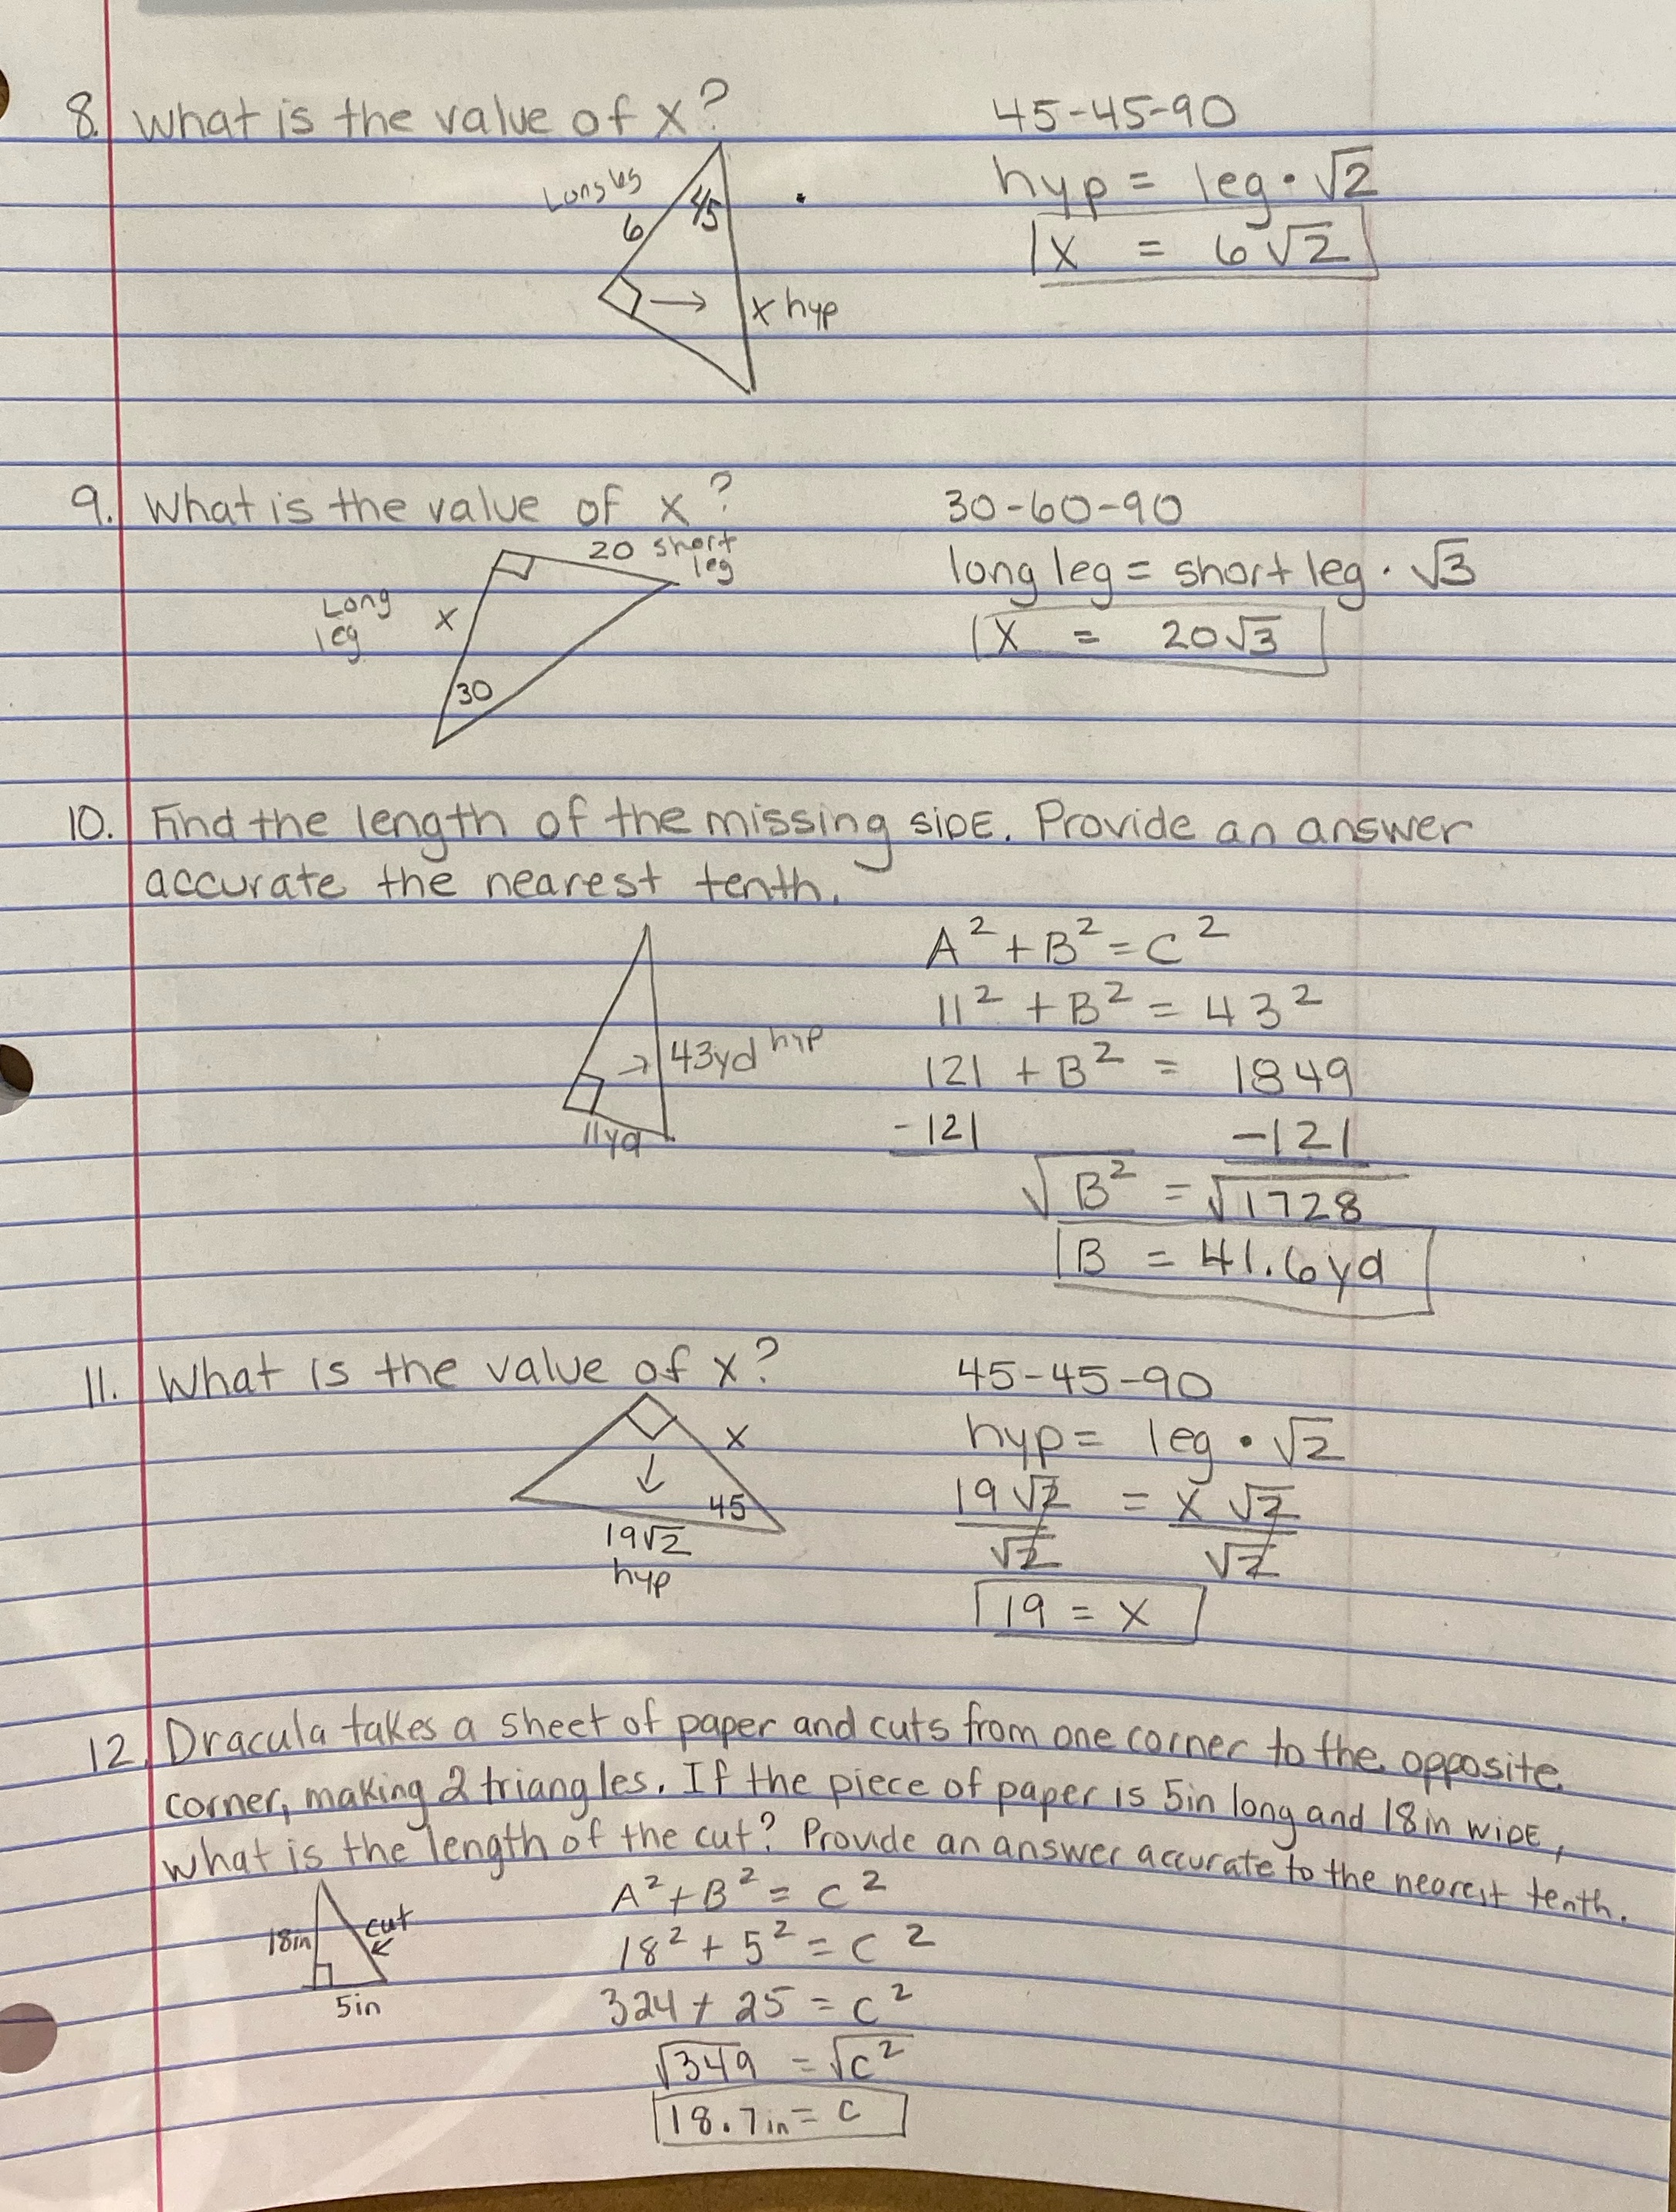 8. What is the value of x?
Long leg
6
45
x hyp
45-45-90
hyp = leg · √2
x = 6√2
9. What is the value of x?
20 short leg
Long leg
x
30
30-60-90
long leg = short leg · √3
x = 20√3
10. Find the length of the missing siDE. Provide an answer
accurate the nearest tenth.
43yd hyp
11yd
A² + B² = C²
11² + B² = 43²
121 + B² = 1849
-121 -121
√B² = √1728
B = 41.6yd
11. What is the value of x?
x
45
19√2
hyp
45-45-90
hyp = leg · √2
19√2 = x√2
√2 √2
19 = x
12. Dracula takes a sheet of paper and cuts from one corner to the opposite
corner, making 2 triangles. If the piece of paper is 5in long and 18in wiDE,
what is the length of the cut? Provide an answer accurate to the nearest tenth.
18in
cut
5in
A² + B² = C²
18² + 5² = C²
324 + 25 = C²
√349 = √C²
18.7in = C